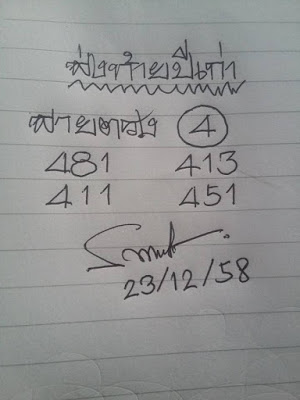 ส่งท้ายปีเก่า
4
481 413
411 451
23/12/58